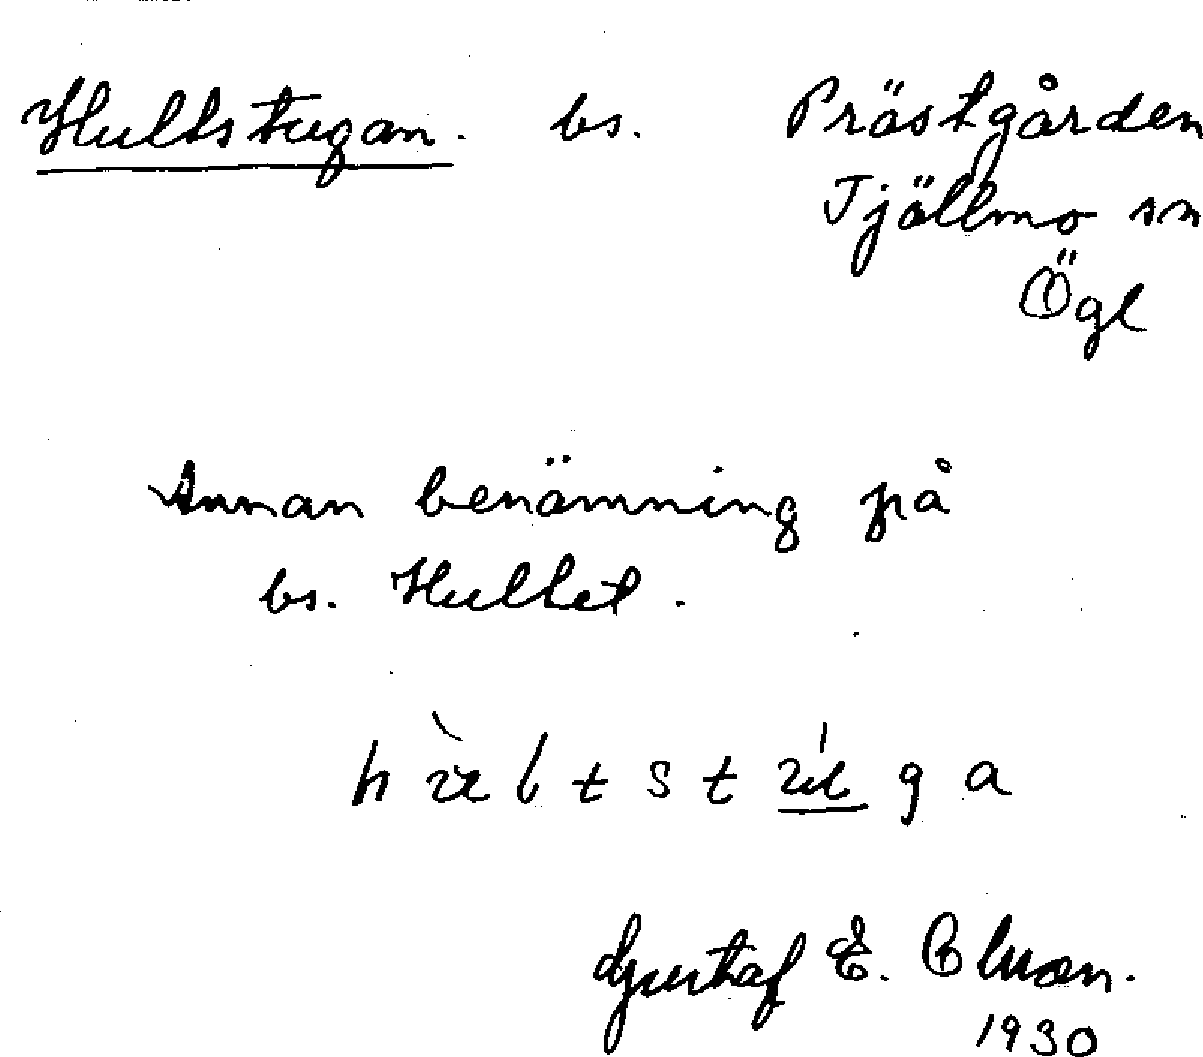 Hultstugan. bs. Prästgården
Tjällmo sn
Ögl
Annan benämning på
bs. Hultet.
Gustaf E.
1930